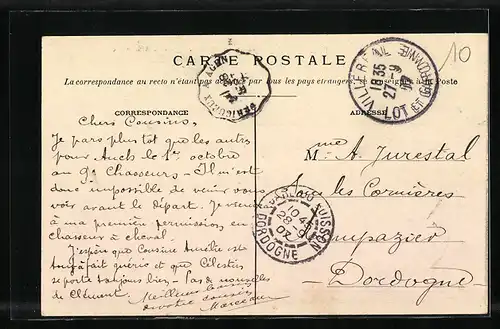 CARTE POSTALE
La correspondance au recto n'était pas acceptée par tous les pays étrangers
à la Poste
CORRESPONDANCE
ADRESSE
Chers Cousins,
Je pars plus tôt que les autres
pour Auch le 1er octobre
au 9e Chasseurs - Il m'est
donc impossible de venir vous
voir avant le départ. Je viendrai
à ma première permission en
chasseur à cheval.
J'espère que Cousine Amélie est
tout à fait guérie et que Célestin
se porte toujours bien - Pas de nouvelles
de Clément. Meilleurs baisers
de votre cousin
Marceau
Mme A. Jurestal
Sous les Cornières
Dordogne
VILLEREAL
18 35
27 - 9
07
LOT ET GARONNE
PERIGUEUX A AGEN
10 4
28 - 9
07
DORDOGNE
10